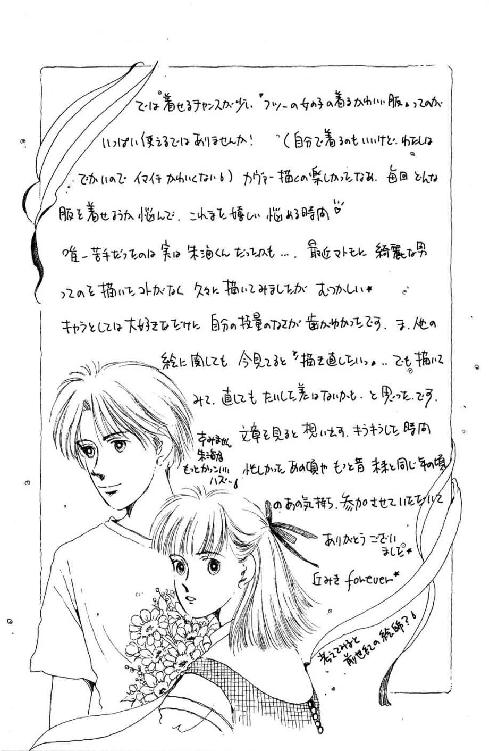 では"着せるチャンスが少い"フツーの女の子の着るかわいい服"ってのが
いっぱい使えるではありませんか! (自分で着るのもいいけど、わたしは
でかいのでイマイチかわいくない) カヴァー描くの楽しかったなあ。毎回どんな
服を着せようか悩んで、これまた嬉しい悩める時間♡
唯一苦手だったのは実は朱海くんだったかも…。最近マトモに綺麗な男
ってのを描いたコトがなく久々に描いてみましたが むつかしい★
キャラとしては大好きなだけに 自分の技量のなさが歯がゆかったです。ま、他の
絵に関しても 今見てると"描き直したいっ"…でも描いて
みて、直してもたいした差はないかも。と思ったです。
すみません
朱海は
もっとかっこいい
ハズ〜
文章を見ると想い出す、キラキラした時間
忙しかったあの頃や もっと昔 未来と同じ年の頃
のあの気持ち。参加させていただいて
ありがとうござい
ました★
丘みき forever★
考えてみると
前世までの絵師?